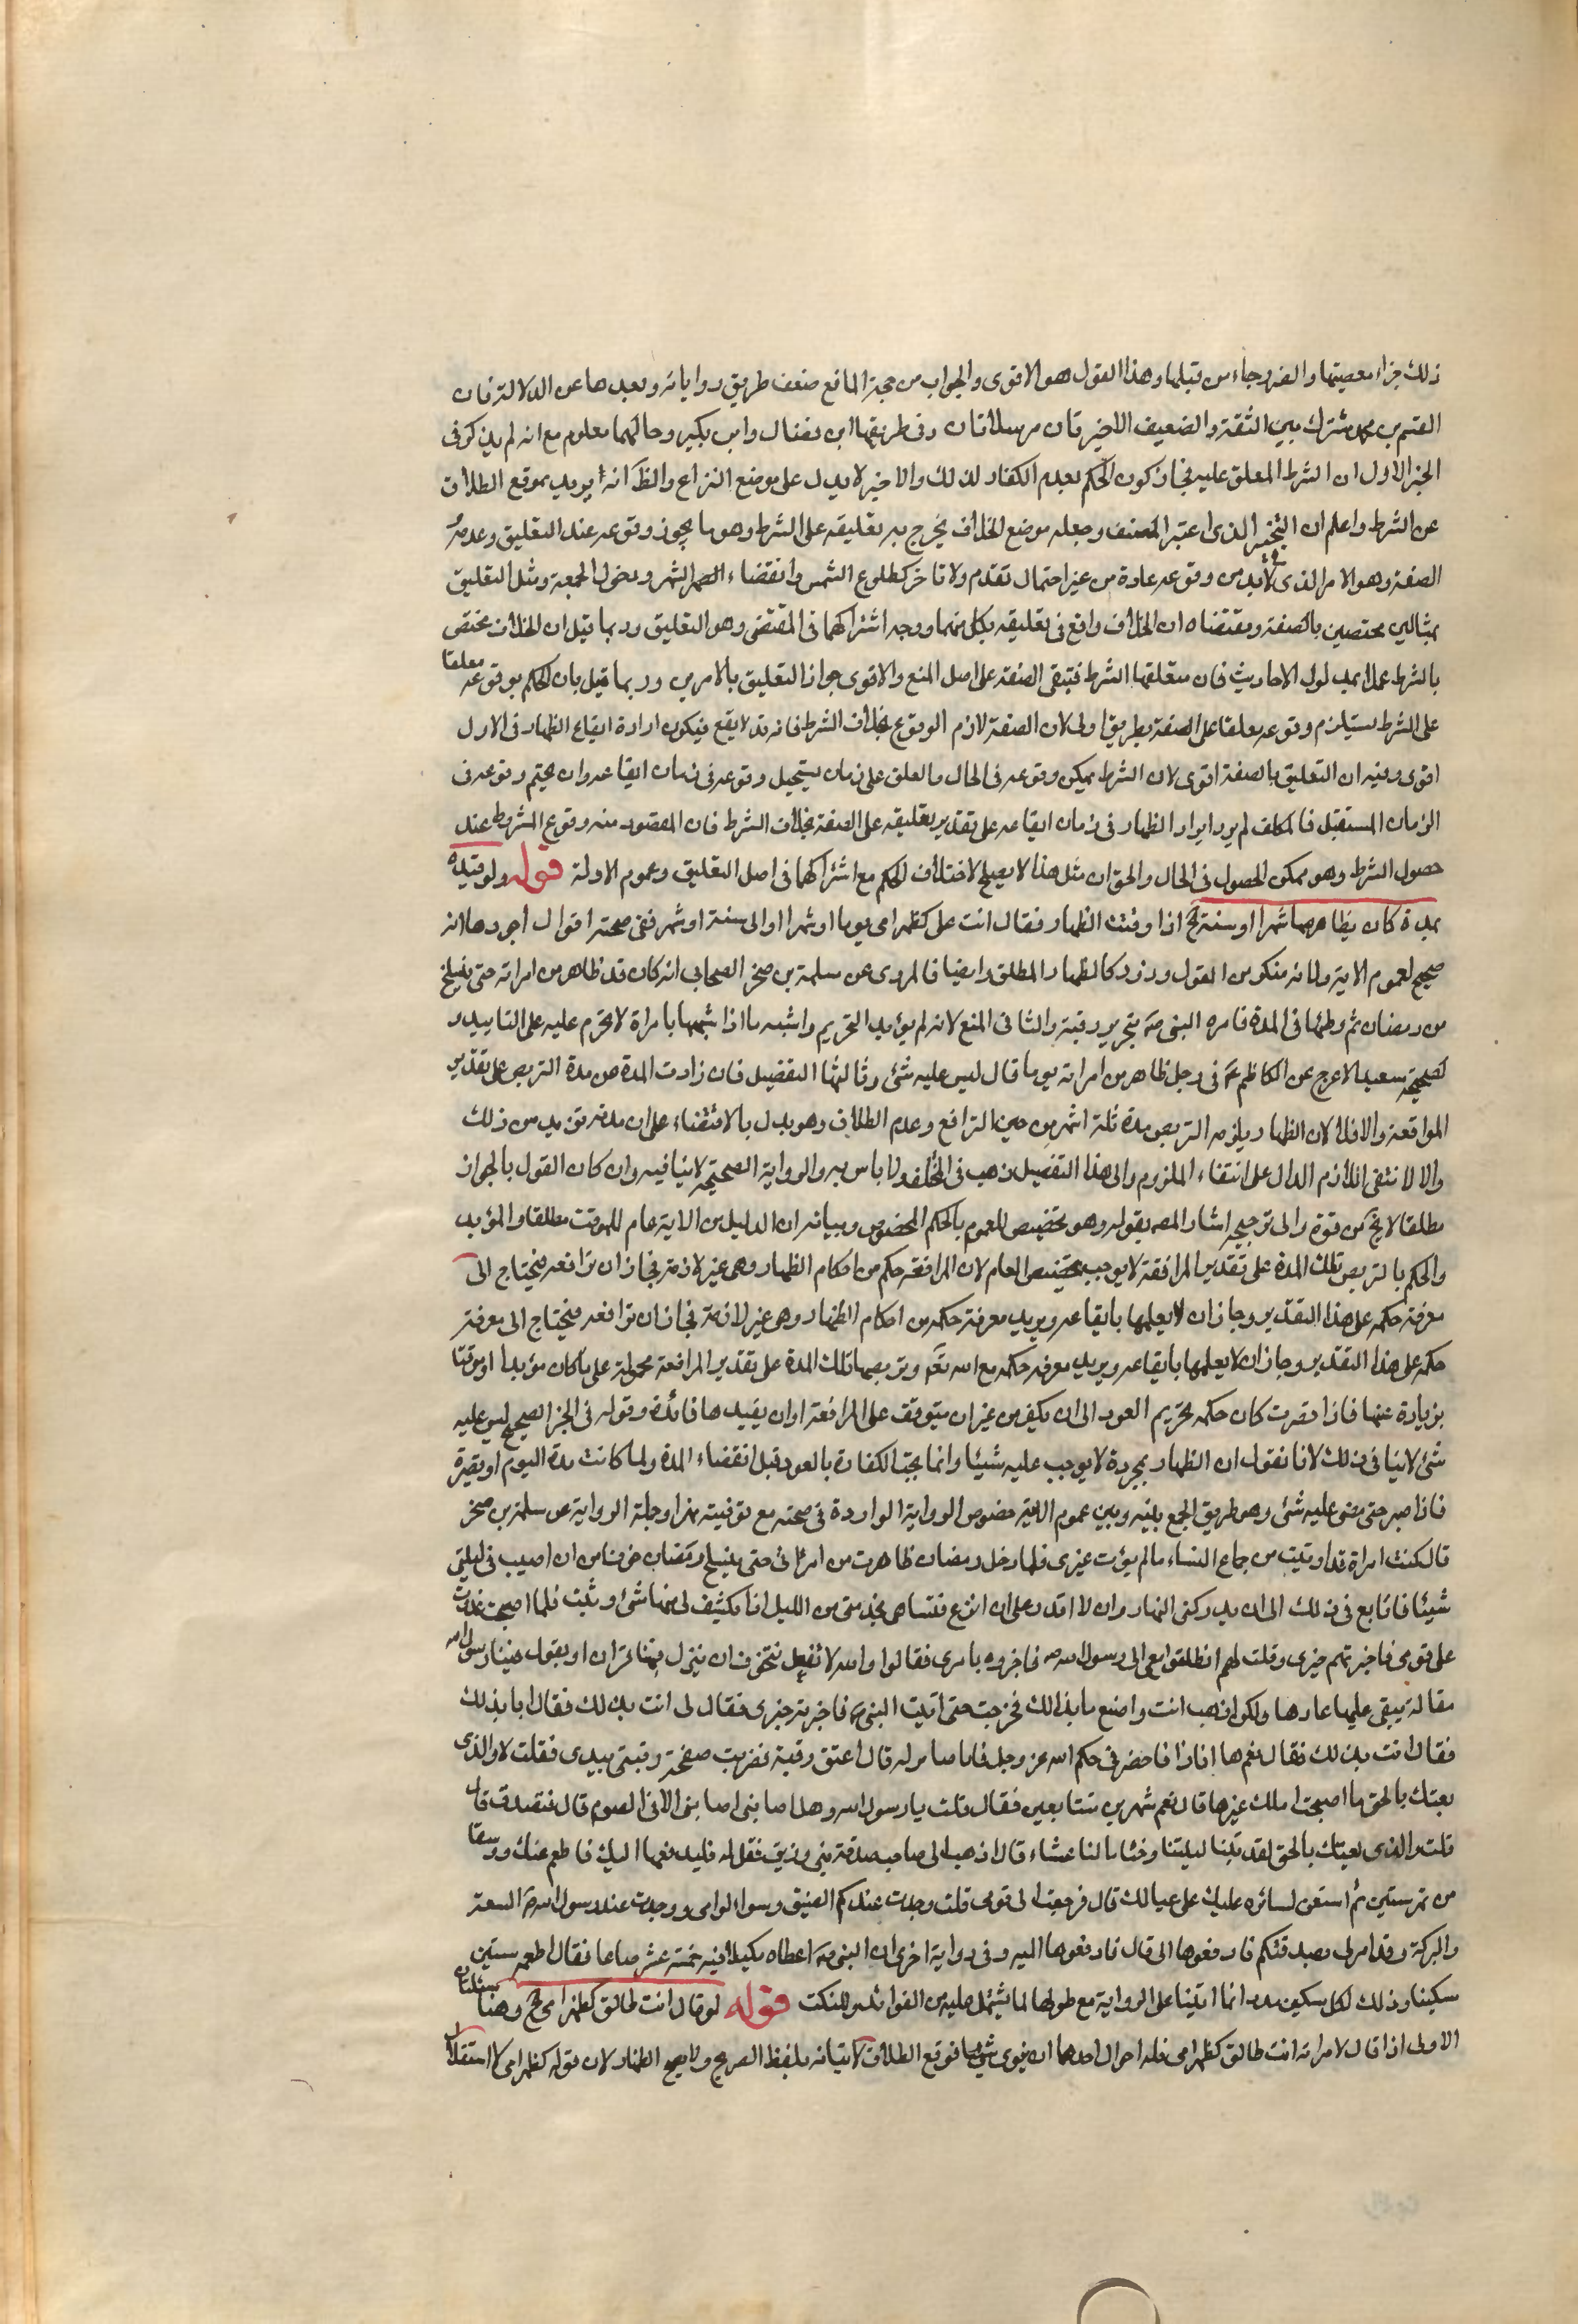 ذلك جزاء معصيتها والضرر جاء من قبلها وهذا القول هو الاقوى والجواب من حجة المانع ضعف طريق رواياته وبعدها عن الدلالة فان
القسم بن محمد مشترك بين الثقة والضعيف الاخيرتان مرسلاتان وفى طريقهما ابن فضال وابن بكير وحالهما معلوم مع انه لم يذكر فى
الخبر الاول ان الشرط المعلق عليه فجاز كون الحكم بعدم الكفار لذلك والاخير لا يدل على موضع النزاع والظ انه يريد بموقع الطلاق
عن الشرط واعلم ان الذى اعتبر المصنف وجعله موضع الخلاف يخرج به تعليقه على الشرط وهو ما يجوز وقوعه عند التعليق وعدمه
الصفة وهو الامر الذى لا بد من وقوعه عادة من غير احتمال تقدم ولا تاخر كطلوع الشمس وانقضاء الشهر ودخول الجمعة ومثل التعليق
بمثالين مختصين بالصفة ومقتضاه ان الخلاف واقع فى تعليقه بكل منهما ووجه اشتراكهما فى المقتضى وهو التعليق وربما قيل ان الخلاف مختص
بالشرط عملا بمدلول الاحاديث فان متعلقها الشرط فتبقى الصفة على اصل المنع والاقوى جواز التعليق بالامرين وربما قيل بان الحكم بوقوعه معلقا
على الشرط يستلزم وقوعه معلقا على الصفة بطريق اولى لان الصفة لازم الوقوع بخلاف الشرط فانه قد لا يقع فيكون ارادة ايقاع الظهار فى الاول
اقوى وفيه ان التعليق بالصفة اقوى لان الشرط يمكن وقوعه فى الحال والمعلق على زمان يستحيل وقوعه فى زمان ايقاعه وان يحتم وقوعه فى
الزمان المستقبل فالمكلف لم يرد ايراد الظهار فى زمان ايقاعه على تقدير تعليقه على الصفة بخلاف الشرط فان المقصود منه وقوع المشروط عند
حصول الشرط وهو ممكن الحصول فى الحال والحق ان مثل هذا لا يصلح لاختلاف الحكم مع اشتراكهما فى اصل التعليق وعموم الادلة قوله ولو قيده
بمدة كان يظاهرها شهرا او سنة الخ اذا وقت الظهار فقال انت على كظهر امى يوما او شهرا او الى سنة او شهر ففى صحته اقوال اجودها انه
صحيح لعموم الاية ولانه منكر من القول وزور كالظهار المطلق وايضا فالمروى عن سلمة بن صخر الصحابى انه كان قد ظاهر من امراته حتى ينسلخ
من رمضان ثم وطئها فى المدة فامره النبى ص بتحرير رقبة والثانى المنع لانه لم يؤبد التحريم واشبه ما اذا شبهها بامراة لا تحرم عليه على التابيد و
لصحيحة سعيد الاعرج عن الكاظم ع فى رجل ظاهر من امراته يوما قال ليس عليه شئ وثالثها التفصيل فان زادت المدة عن مدة التربص على تقدير
المواقعة والا فلا لان الظهار يلزمه التربص مدة ثلثة اشهر من حين الترافع وعدم الطلاق وهو يدل بالاقتضاء على ان مدته تزيد من ذلك
والا لا نتفى اللازم الدال على انتفاء الملزوم والى هذا التفصيل ذهب فى المختلف ولا باس به والرواية الصحيحة لا ينافيه وان كان القول بالجواز
مطلقا لا يخ من قوة والى ترجيحه اشار المصـ بقوله وهو تخصيص للعموم بالحكم المخصوص وبيانه ان الدليل من الاية عام للموقت مطلقا والمؤبد
والحكم بالتربص تلك المدة على تقدير المرافقة لا يوجب تخصيص العام لان المرافعة حكم من احكام الظهار وهى غير لازمة فجاز ان ترافعه فيحتاج الى
معرفة حكمه على هذا التقدير وجاز ان لا يعلمها بايقاعه ويريد معرفة حكمه من احكام الظهار وهى غير لازمة فجاز ان ترافعه فيحتاج الى معرفة
حكمه على هذا التقدير وجاز ان لا يعلمها بايقاعه ويريد معرفه حكمه مع الله تع وتربصها تلك المدة على تقدير المرافعة محمولة على ما كان مؤبدا او موقتا
بزيادة عنها فاذا قصرت كان حكمه تحريم العود الى ان يكفر من غير ان يتوقف على المرافعة او ان يقيدها فائدة وقوله فى الخبر الصحيح ليس عليه
شئ لا ينافى ذلك لانا نقول ان الظهار بمجرده لا يوجب عليه شيئا وانما يجب الكفارة بالعود قبل انقضاء المدة ولما كانت مدة اليوم او قصيرة
فاذا صبر حتى مضى عليه شئ وهو طريق الجمع بينه وبين عموم الاية خصوص الرواية الواردة فى صحته مع توقيته بهذا وجملة الرواية عن سلمة بن صخر
قال كنت امراة قد اوتيت من جماع النساء ما لم يؤت غيرى فلما دخل رمضان ظاهرت من امراتى حتى ينسلخ رمضان خوفا من ان اصيب فى ليلتى
شيئا فاتابع فى ذلك الى ان يدركنى النهار وان لا اقدر على ان انزع فبينا هى تخدمنى من الليل اذا تكشف لى منها شئ وثبت فلما اصبحت غدوت
على قومى فاخبرتهم خبرى وقلت لهم انطلقوا معى الى رسول الله ص فاخبروه بامرى فقالوا والله لا نفعل نتخوف ان ينزل فينا قران او يقول فينا رسول الله
مقالة يبقى عليها عارها ولكن اذهب انت واصنع ما بدا لك فخرجت حتى اتيت النبى ص فاخبرته خبرى فقال لى انت بذلك فقال انا بذلك
فقال انت بذلك فقال نعم ها انا ذا فامض فى حكم الله عز وجل فانا صابر له قال اعتق رقبة فضربت صفحة رقبتى بيدى فقلت لا والذى
بعثك بالحق ما اصبحت املك غيرها قال فصم شهرين متتابعين فقال قلت يا رسول الله وهل اصابنى ما اصابنى الا فى الصوم قال فتصدق قال
قلت والذى بعثك بالحق لقد بتنا ليلتنا وحشا مالنا عشاء قال اذهب الى صاحب صدقة بنى زريق فقل له فليدفعها اليك فاطعم عنك وسقا
من تمر ستين ثم استعن بسائره عليك وعلى عيالك قال فرجعت الى قومى قلت وجدت عندكم الضيق وسوء الراى ووجدت عند رسول الله ص السعة
والبركة وقد امر لى بصدقتكم فادفعوها الى قال فادفعوها اليه وفى رواية اخرى ان النبى ص اعطاه مكيلا فيه خمسة عشر صاعا فقال اطعمه ستين
مسكينا وذلك لكل مسكين مد وانما اتينا على الرواية مع طولها لما يشتمل عليه من الفوائد والنكت قوله لو قال انت طالق كظهر امى الخ وهنا مسئلتان
الاولى اذا قال لامراته انت طالق كظهر امى فله احوال احدها ان ينوى شيئا فوقع الطلاق لاتيانه بلفظ الصريح ولا يصح الظهار لان قوله كظهر امى لا استقلال